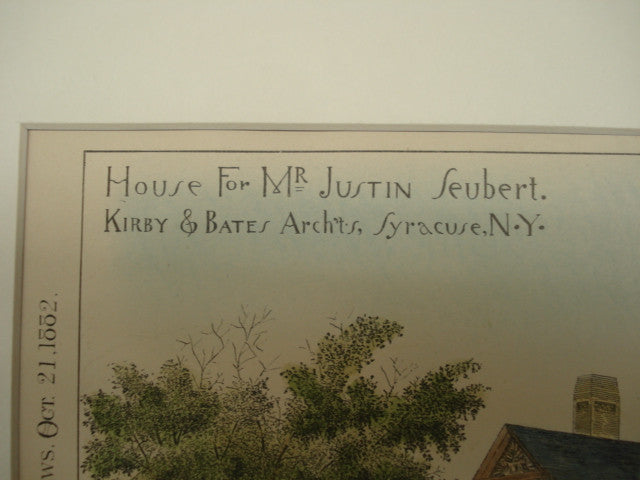 House For Mr Justin Seubert.
Kirby & Bates Arch'ts, Syracuse, N.Y.
Oct. 21, 1882.